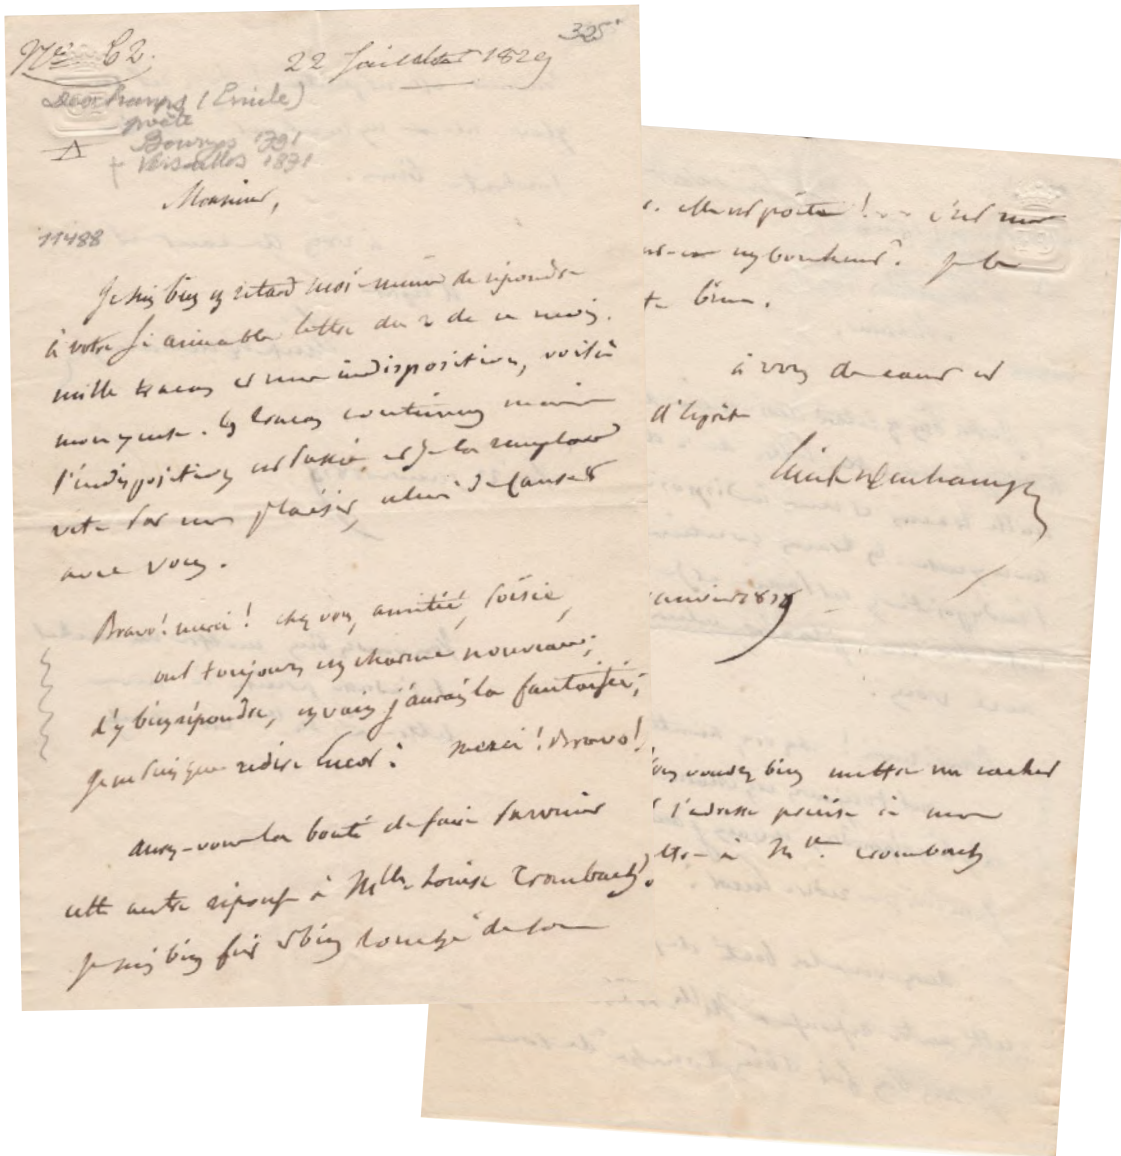 No 62.
325
22 Juillet 1829
Deschamps (Emile)
poète
Bourges 1791
+ Versailles 1871
Monsieur,
11488
Je suis bien en retard moi-même de répondre
à votre si aimable lettre du 2 de ce mois.
mille tracas et une indisposition, voilà
mon excuse. les tracas continuent mais
l'indisposition est passée et je la remplace
vite par un plaisir, celui de causer
avec vous.
Bravo! merci! chez vous, amitié, poésie,
ont toujours un charme nouveau;
d'y bien répondre, en vain j'aurais la fantaisie;
Je ne puis que redire encor: merci! Bravo!
aurez-vous la bonté de faire parvenir
cette autre réponse à Mlle Louise Crombach?
Je suis bien fier et bien touché de son
elle est poète! c'est
un bonheur? Je le
bien.
à vous de cœur et
d'esprit
Emile Deschamps
janvier 18
vous voudrez bien mettre un cachet
l'adresse précise à ma
à Mlle. Crombach